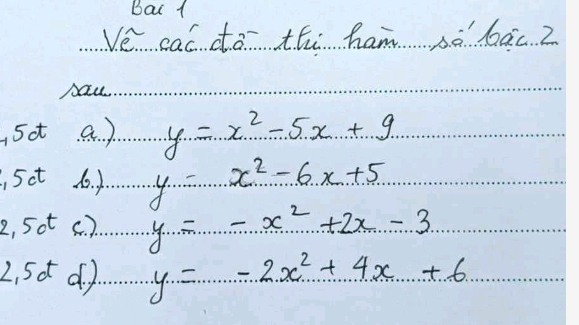 Bài 1
Vẽ các đồ thị hàm số bậc 2
sau
,5đ a.) y = x² - 5x + 9
,5đ b.) y = x² - 6x + 5
2,5đ c.) y = - x² + 2x - 3
2,5đ d.) y = - 2x² + 4x + 6